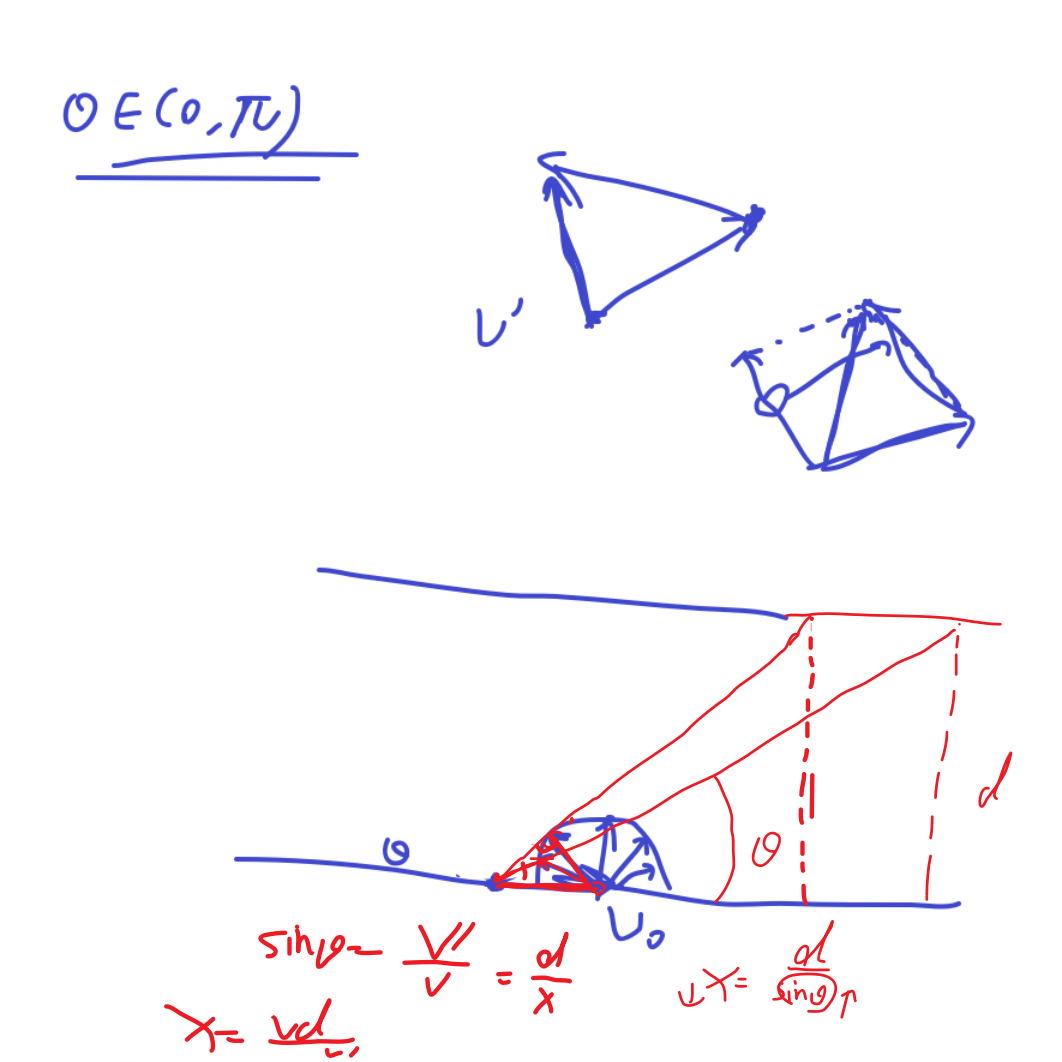 θ∈(0,π)
v'
d
θ
θ
v₀
sinθ = v''/v = d/x
↓x = d/sinθ↑
x = vd/v''